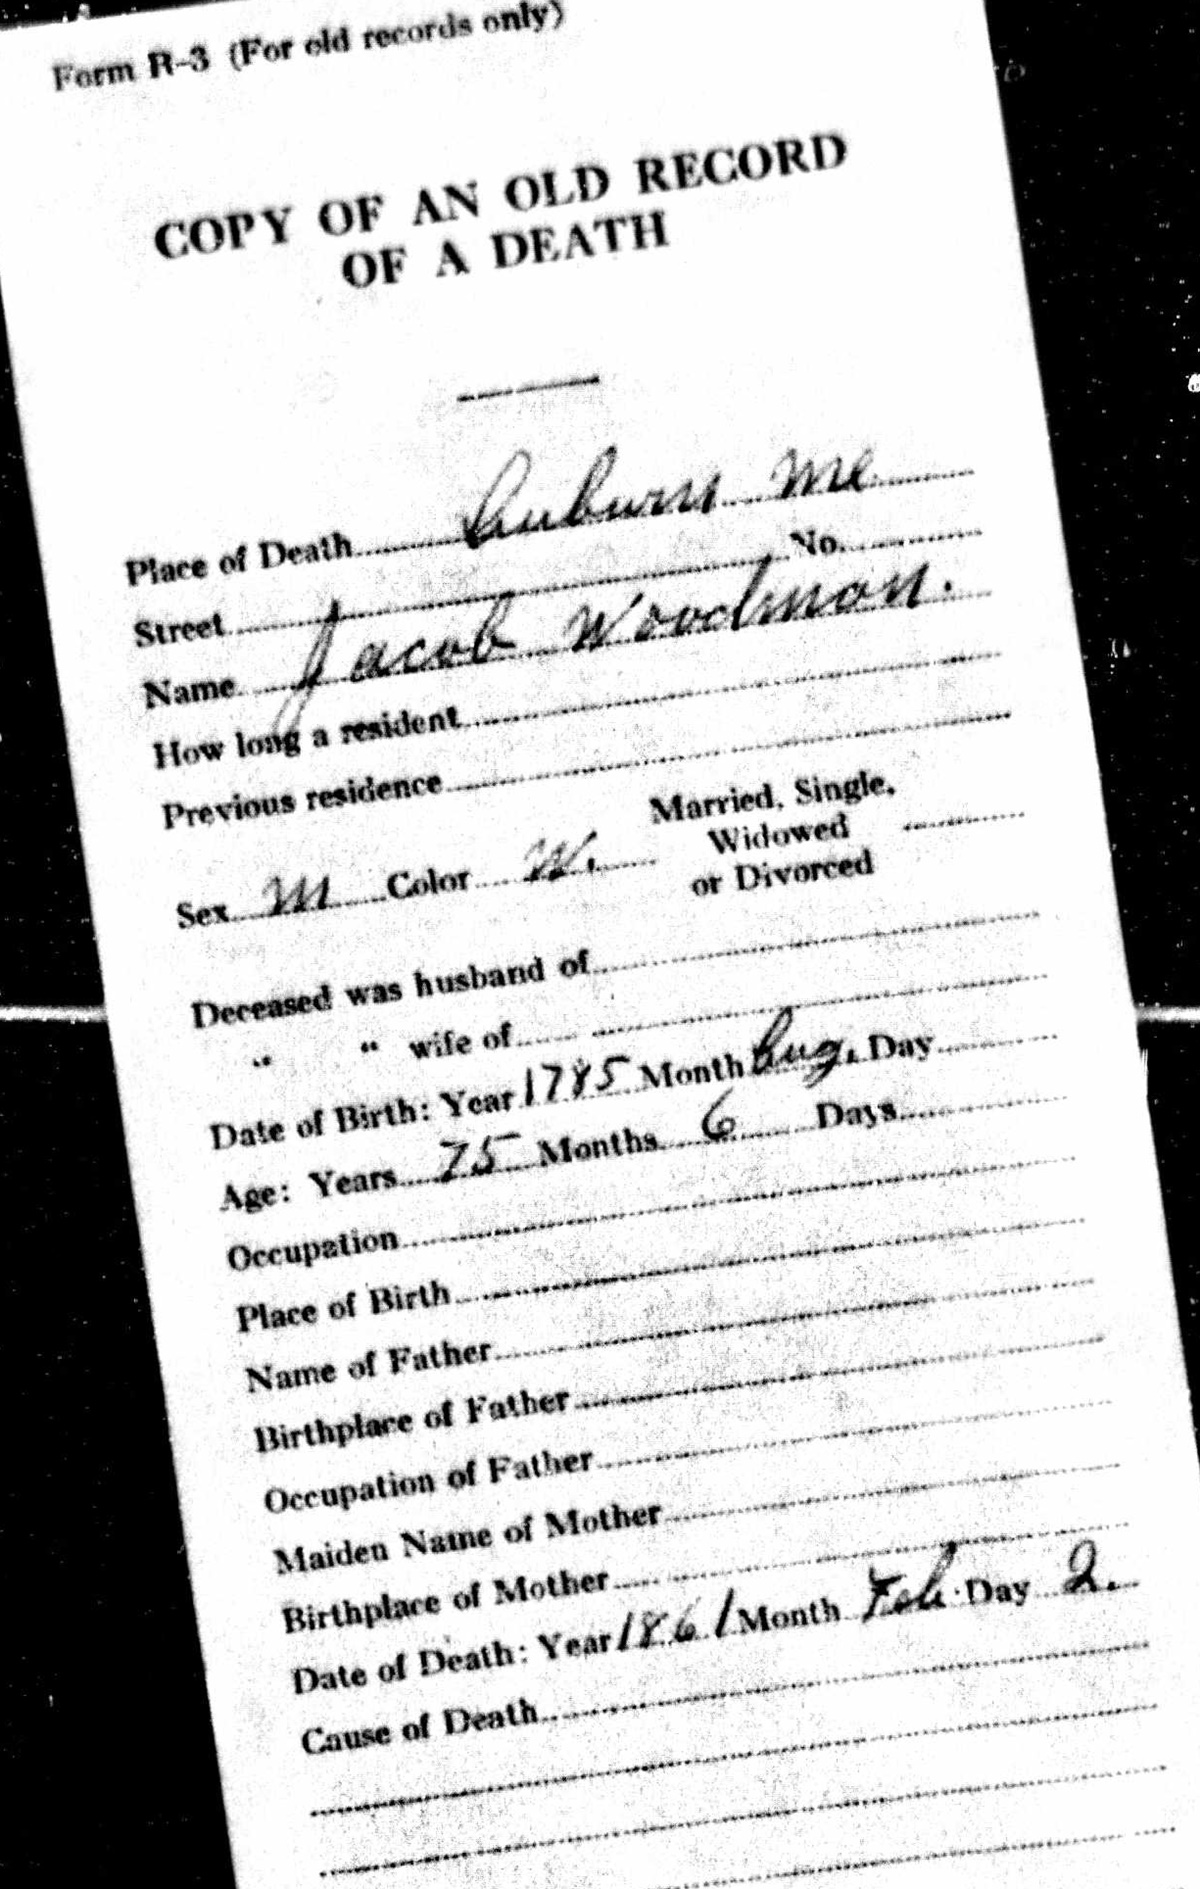 Form R-3 (For old records only)
COPY OF AN OLD RECORD
OF A DEATH
Place of Death Auburn Me.
Street No.
Name Jacob Woodman.
How long a resident
Previous residence
Sex M Color W. Married, Single, Widowed or Divorced
Deceased was husband of
" " wife of
Date of Birth: Year 1785 Month Aug. Day
Age: Years 75 Months 6 Days
Occupation
Place of Birth
Name of Father
Birthplace of Father
Occupation of Father
Maiden Name of Mother
Birthplace of Mother
Date of Death: Year 1861 Month Feb. Day 2.
Cause of Death